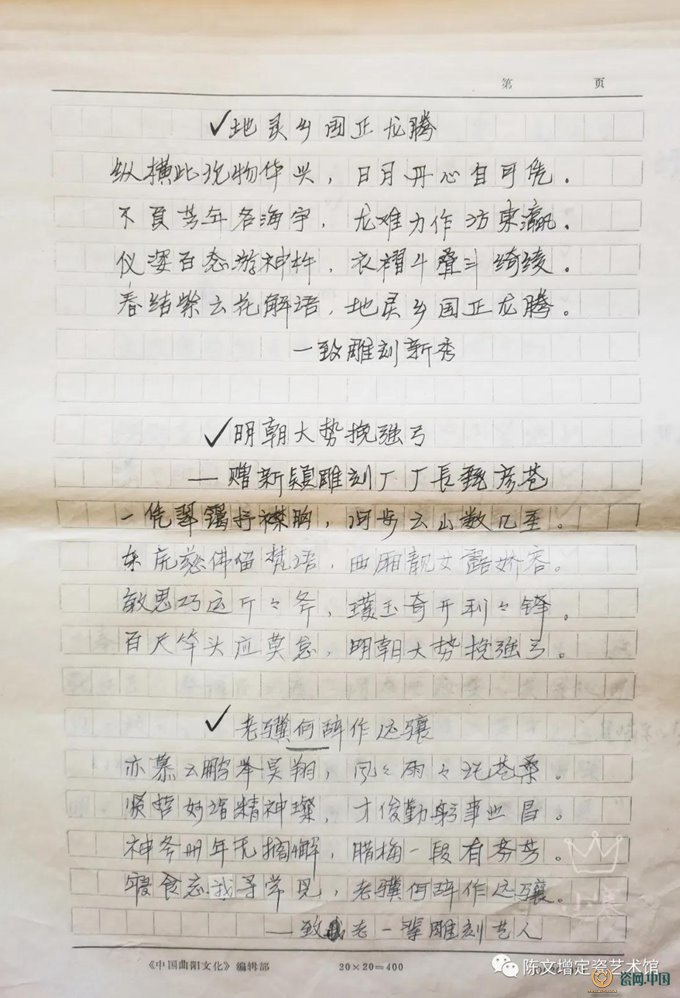 第 页
✓地灵乡国正龙腾
纵横此境物华兴，日月丹心自可凭。
不负芳年名海宇，龙难力作访東瀛。
仪姿百态游神杵，衣褶斗叠斗绮绫。
春结紫云花解语，地灵乡国正龙腾。
—致雕刻新秀
✓明朝大势挽强弓
——赠新颖雕刻厂厂長甄彦苍
一凭 抒襟胸，河步云山数几重。
东庑慈佛留梵语，西厢靓女露娇容。
敏思巧运斤々斧，璞玉奇开利々锋。
百尺竿头应莫怠，明朝大势挽强弓。
✓老骥何辞作远骧
亦慕云鹏举昊翔，风々雨々沧桑。
妙谐精神璨，才俊勤躬事业昌。
神斧卅年无摘解，腊梅一段有芬芳。
寝食忘我寻常见，老骥何辞作远骧。
——致老一辈雕刻艺人
《中国曲阳文化》编辑部 20×20=400
陈文增定瓷艺术馆
瓷网.中国